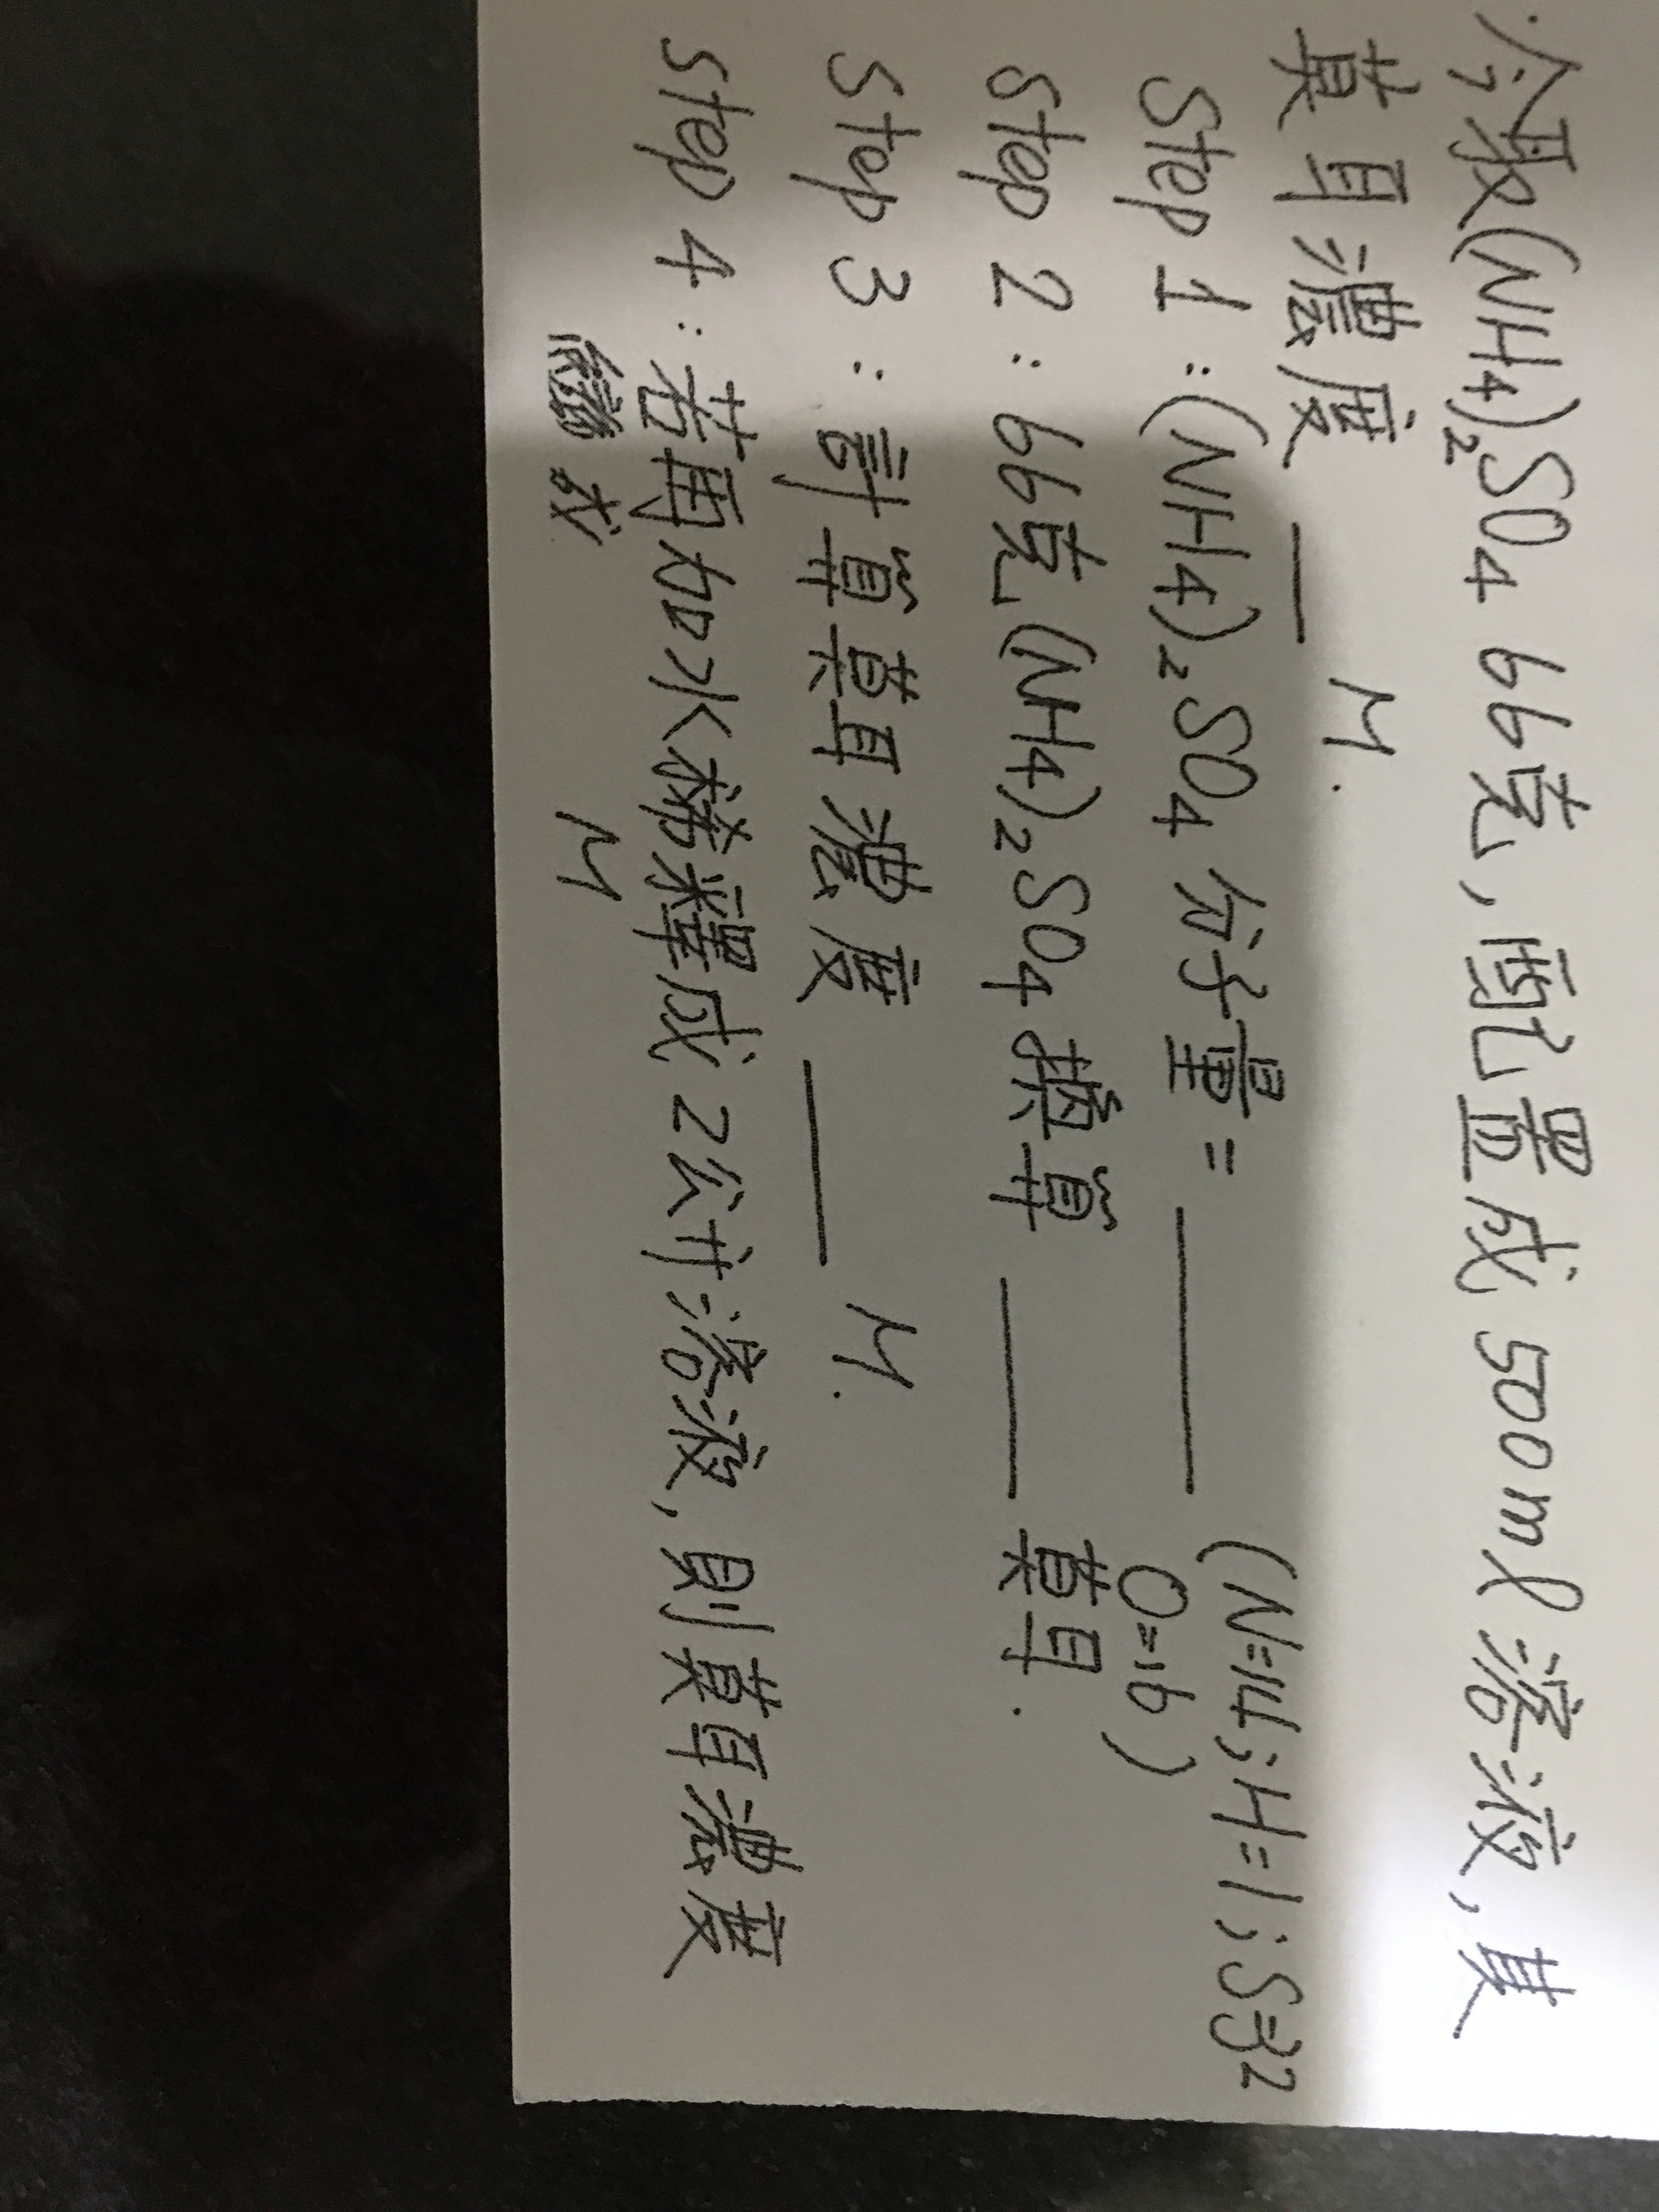 今取(NH4)2SO4 66克,配置成500ml溶液,其
莫耳濃度 ___ M.
Step 1:(NH4)2SO4 分子量= ___ (N=14;H=1;S=32
O=16)
Step 2:66克(NH4)2SO4換算 ___ 莫耳.
Step 3:計算莫耳濃度 ___ M.
Step 4:若再加水稀釋成2公升溶液,則莫耳濃度
成 M